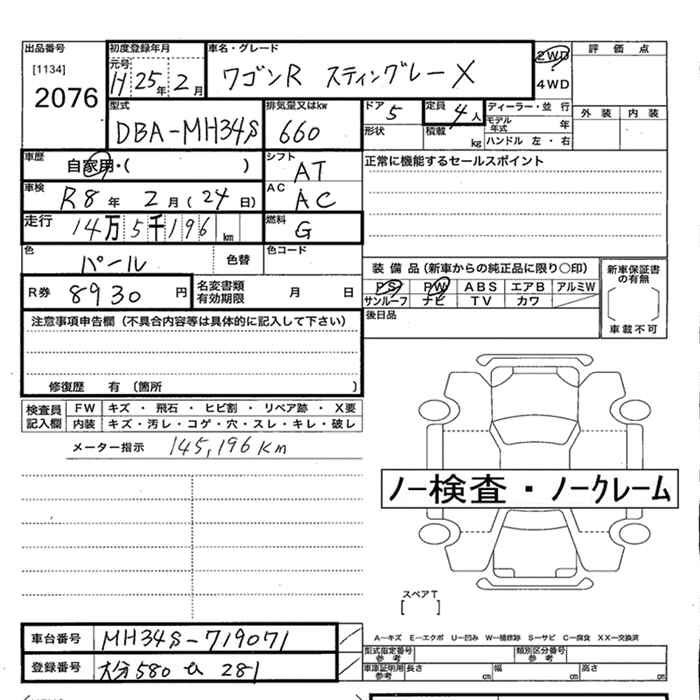 出品番号 初度登録年月 車名・グレード 2WD 評価点
[1134] 元号 H 25年 2月 ワゴンR スティングレーX 4WD
2076 外装 内装
型式 排気量又はkw ドア 5 定員 4人 ディーラー・並行
DBA-MH34S 660 形状 積載 kg モデル年式 年
ハンドル 左・右
車歴 自家用・( ) シフト AT 正常に機能するセールスポイント
車検 R8年 2月(24日) AC AC
走行 14万5千196km 燃料 G
色 パール 色替 色コード
装備品(新車からの純正品に限り○印) 新車保証書の有無
R券 8930円 名変書類有効期限 月 日 PS PW ABS エアB アルミW
サンルーフ ナビ TV カワ
注意事項申告欄(不具合内容等は具体的に記入して下さい) 後日品 車載不可
修復歴 有 〔箇所 〕
検査員記入欄 FW キズ・飛石・ヒビ割・リペア跡・X要
内装 キズ・汚レ・コゲ・穴・スレ・キレ・破レ
メーター指示 145,196Km
ノー検査・ノークレーム
スペアT
[ ]
A―キズ E―エクボ U―凹み W―補修跡 S―サビ C―腐食 XX―交換済
車台番号 MH34S-719071 型式指定番号 参考 類別区分番号 参考
登録番号 大分580 281 車庫証明用 参考 長さ cm 幅 cm 高さ cm